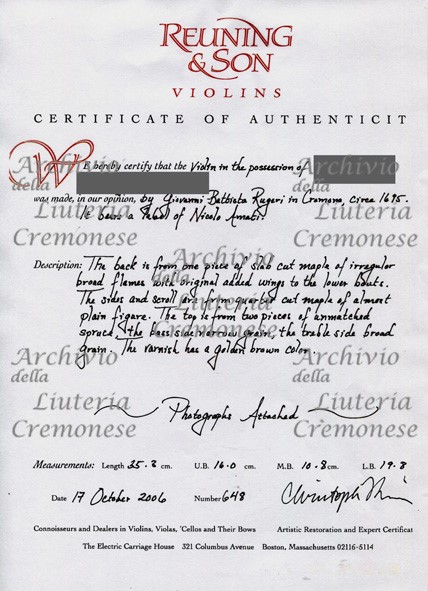 REUNING
& SON
VIOLINS
CERTIFICATE OF AUTHENTICIT
WE hereby certify that the Violin in the possession of
was made, in our opinion, by Giovanni Battista Rugeri in Cremona, circa 1695.
It bears a label of Nicolo Amati.
Description: The back is from one piece of slab cut maple of irregular
broad flames with original added wings to the lower bouts.
The sides and scroll are from quarter cut maple of almost
plain figure. The top is from two pieces of unmatched
spruce, the bass side narrow grain, the treble side broad
grain. The varnish has a golden brown color.
Photographs Attached
Measurements: Length 35.2 cm. U.B. 16.0 cm. M.B. 10.8 cm. L.B. 19.8
Date 17 October 2006 Number 648
Connoisseurs and Dealers in Violins, Violas, 'Cellos and Their Bows Artistic Restoration and Expert Certificat
The Electric Carriage House 321 Columbus Avenue Boston, Massachusetts 02116-5114
Archivio
della
Liuteria
Cremonese
Archivio
della
Liuteria
Cremonese
Archivio
della
Liuteria
Cremonese
Archivio
della
Liuteria
Cremonese
Archivio
della
Liuteria
Cremonese